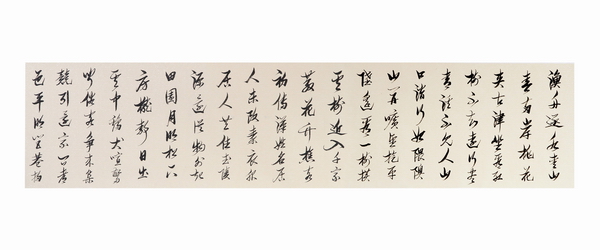 漁舟逐水愛山
春兩岸桃花
夾古津坐看紅
樹不知遠行盡
青谿不見人山
口潛行始隈隩
山開曠望旋平
陸遙看一樹攢
雲樹近入千家
散花竹樵客
初傳漢姓名居
人未改秦衣服
居人共住武陵
源還從物外起
田園月明松下
房櫳靜日出
雲中雞犬喧驚
聞俗客爭來集
競引還家問都
邑平明閭巷掃